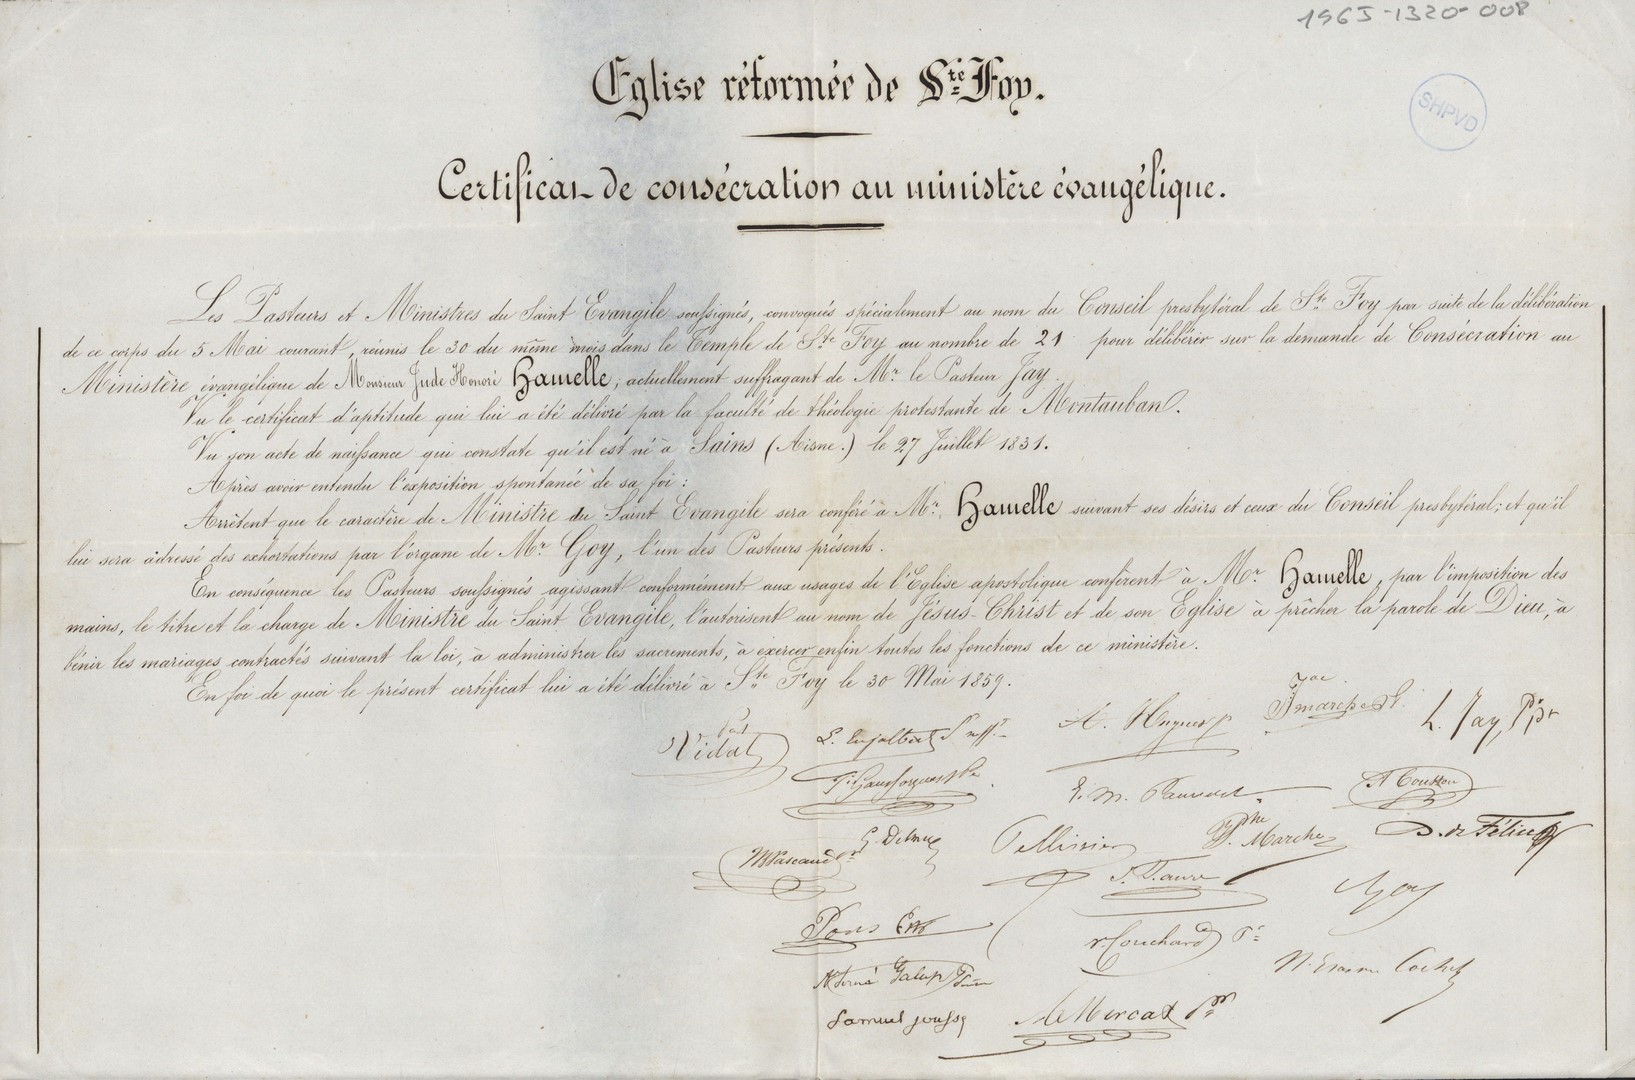 1965-1320-008
SHPVD
Eglise réformée de Ste Foy.
Certificat de consécration au ministère évangélique.
Les Pasteurs et Ministres du Saint Evangile soussignés, convoqués spécialement au nom du Conseil presbytéral de Ste Foy par suite de la délibération
de ce corps du 5 Mai courant, réunis le 30 du même mois dans le Temple de Ste Foy au nombre de 21 pour délibérer sur la demande de Consécration au
Ministère évangélique de Monsieur Jude Honoré Hamelle, actuellement suffragant de Mr le Pasteur Jay.
Vu le certificat d'aptitude qui lui a été délivré par la faculté de théologie protestante de Montauban.
Vu son acte de naissance qui constate qu'il est né à Sains (Aisne.) le 27 Juillet 1831.
Après avoir entendu l'exposition spontanée de sa foi :
Arrêtent que le caractère de Ministre du Saint Evangile sera conféré à Mr Hamelle suivant ses désirs et ceux du Conseil presbytéral; et qu'il
lui sera adressé des exhortations par l'organe de Mr Goy, l'un des Pasteurs présents.
En conséquence les Pasteurs soussignés agissant conformément aux usages de l'Eglise apostolique confèrent à Mr Hamelle, par l'imposition des
mains, le titre et la charge de Ministre du Saint Evangile, l'autorisent au nom de Jésus-Christ et de son Eglise à prêcher la parole de Dieu, à
bénir les mariages contractés suivant la loi, à administrer les sacrements, à exercer enfin toutes les fonctions de ce ministère.
En foi de quoi le présent certificat lui a été délivré à Ste Foy le 30 Mai 1859.
Vidal
L. Enjalbert Suff.
A. Hugues p
L. Jay, Pr
Pellissier
Marche
D. de Félice
Goy
Pons
Couchard Pr
Samuel
Mercat Pr